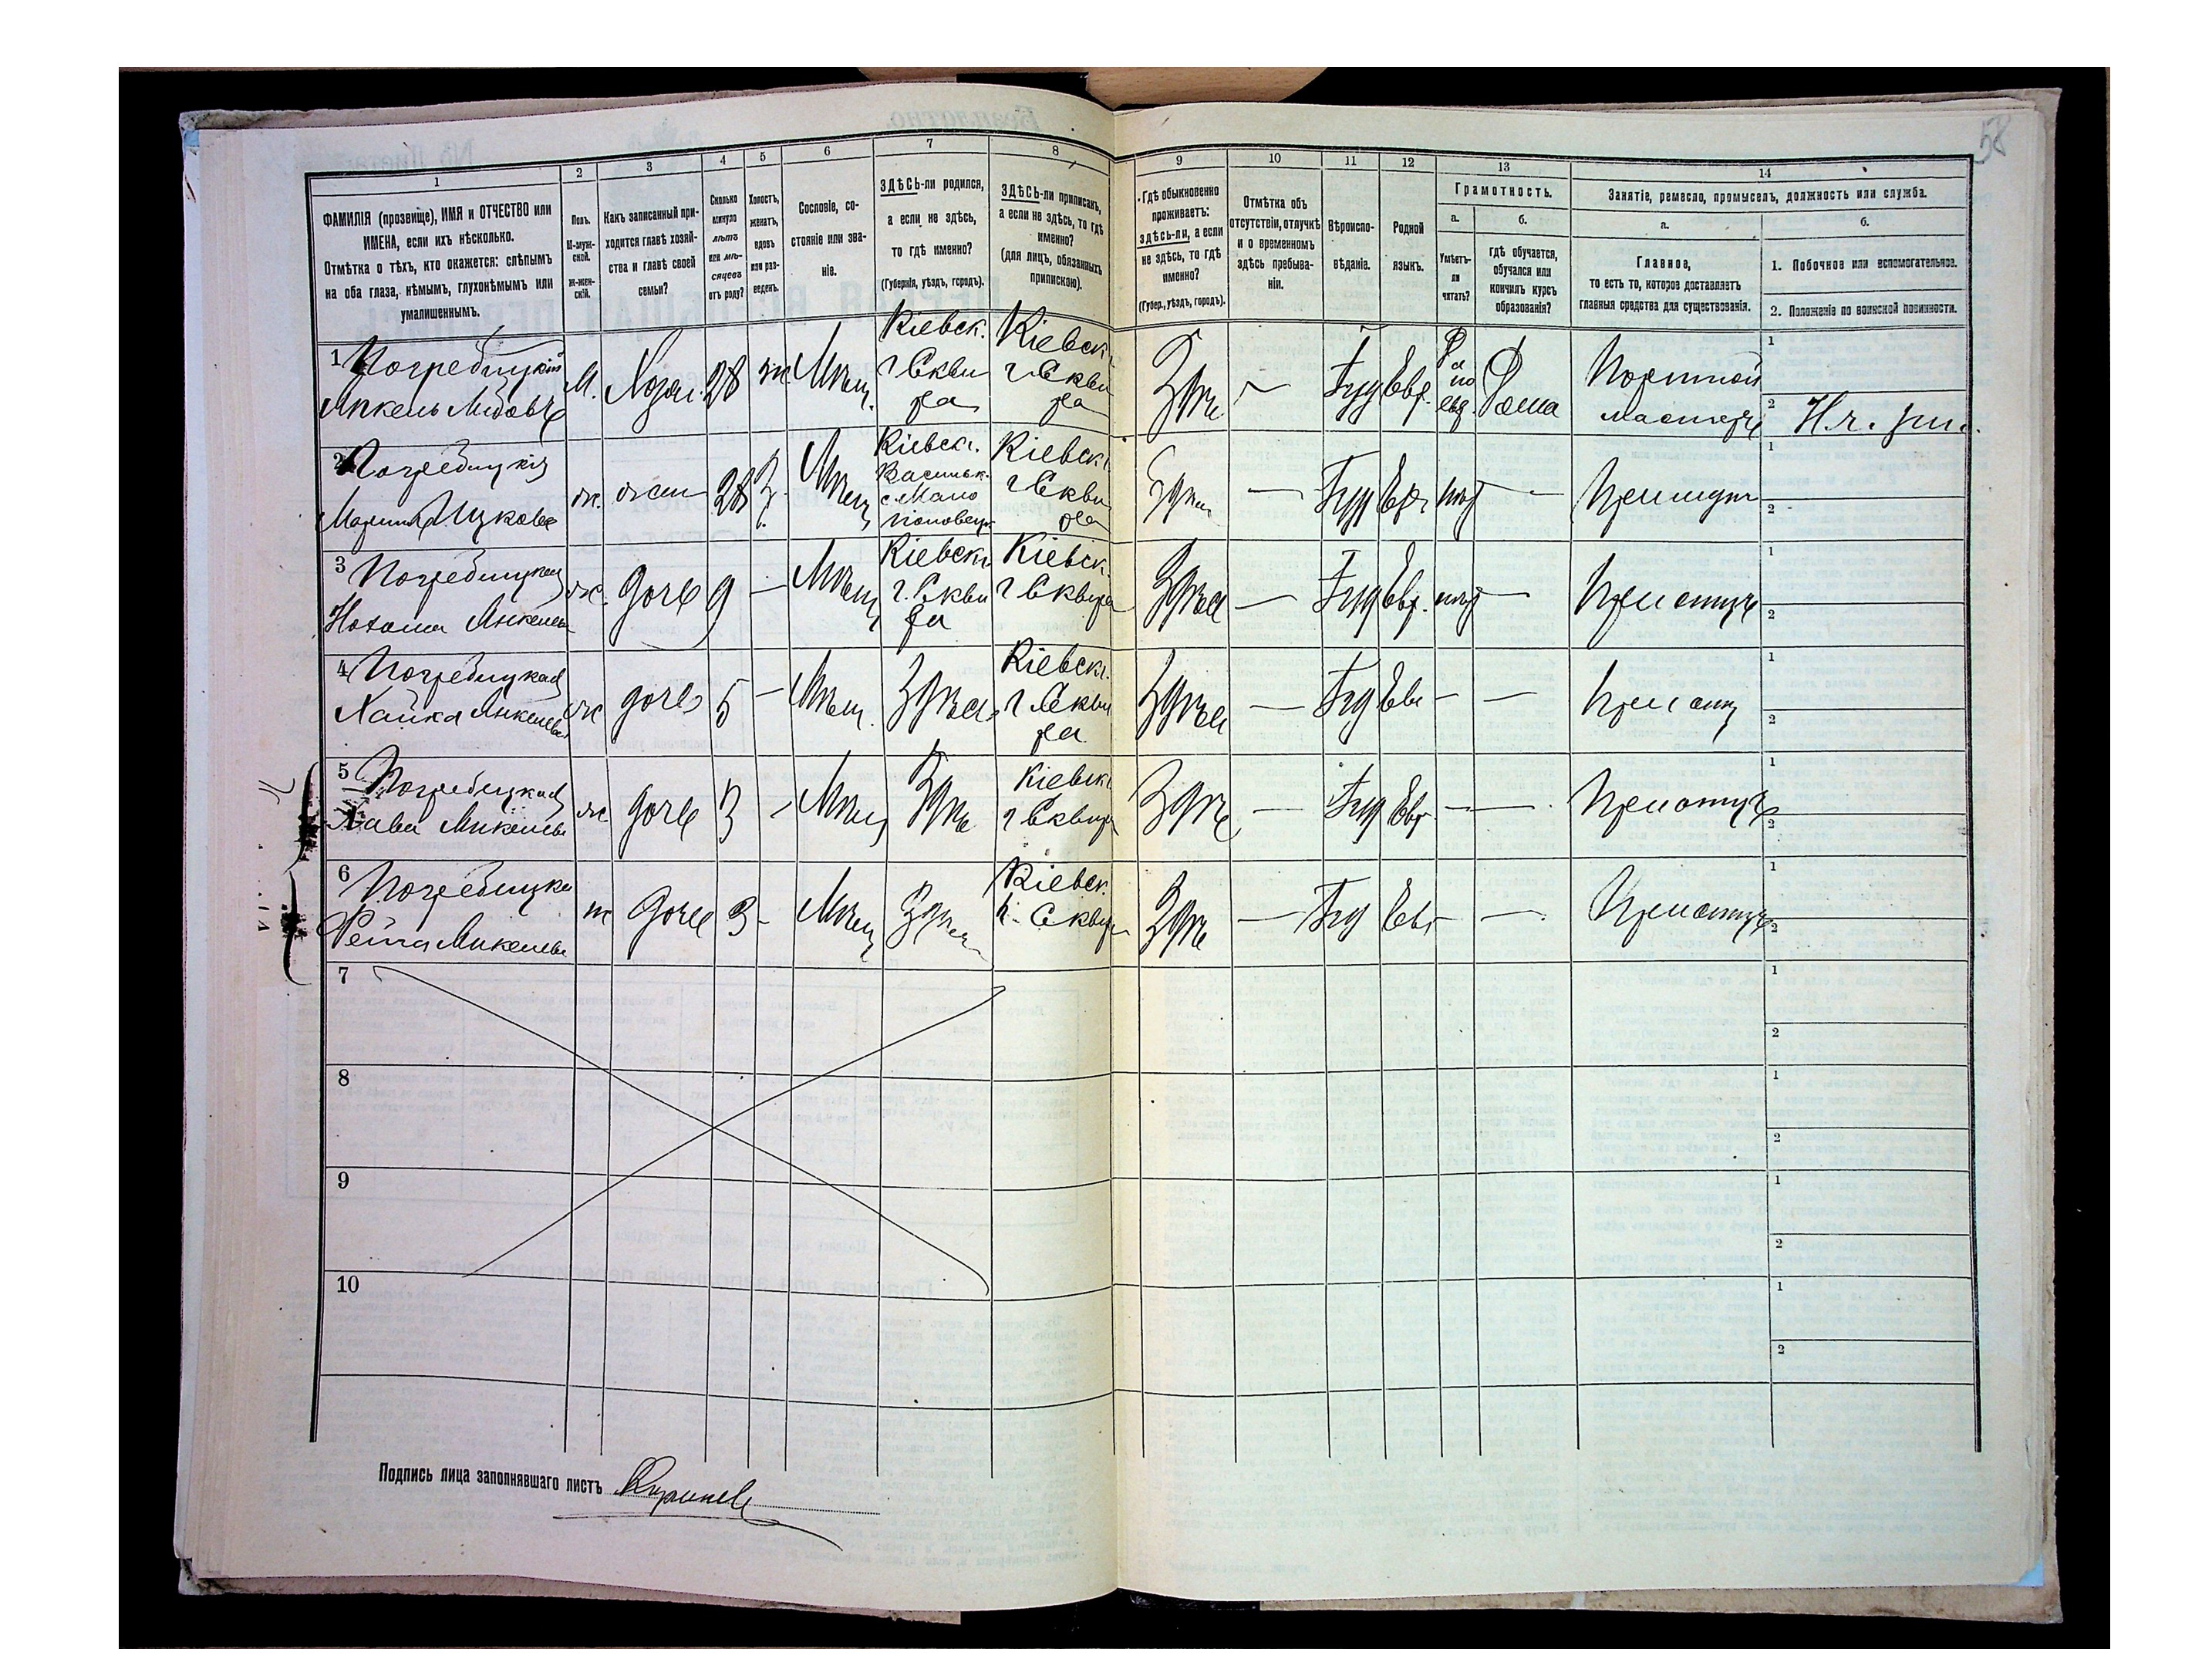 58
1
2
3
4
5
6
7
8
ФАМИЛІЯ (прозвище), ИМЯ и ОТЧЕСТВО или
ИМЕНА, если ихъ нѣсколько.
Отмѣтка о тѣхъ, кто окажется: слѣпымъ
на оба глаза, нѣмымъ, глухонѣмымъ или
умалишеннымъ.
Полъ.
М-муж-
ской.
Ж-жен-
скій.
Какъ записанный при-
ходится главѣ хозяй-
ства и главѣ своей
семьи?
Сколько
минуло
лѣтъ
или мѣ-
сяцевъ
отъ роду?
Холостъ,
женатъ,
вдовъ
или раз-
веденъ.
Сословіе, со-
стояніе или зва-
ніе.
ЗДѢСЬ-ли родился,
а если не здѣсь,
то гдѣ именно?
(Губернія, уѣздъ, городъ).
ЗДѢСЬ-ли приписанъ,
а если не здѣсь, то гдѣ
именно?
(для лицъ, обязанныхъ
припискою).
9
10
11
12
13
14
Гдѣ обыкновенно
проживаетъ:
здѣсь-ли, а если
не здѣсь, то гдѣ
именно?
(Губер., уѣздъ, городъ).
Отмѣтка объ
отсутствіи, отлучкѣ
и о временномъ
здѣсь пребыва-
ніи.
Вѣроиспо-
вѣданіе.
Родной
языкъ.
Грамотность.
а.
б.
Умѣетъ-
ли
читать?
гдѣ обучается,
обучался или
кончилъ курсъ
образованія?
Занятіе, ремесло, промыселъ, должность или служба.
а.
б.
Главное,
то есть то, которое доставляетъ
главныя средства для существованія.
1. Побочное или вспомогательное.
2. Положеніе по воинской повинности.
1 Погребицкій
Янкель
М. 28 Мѣщ.
Кіевск.
г Скви
ра
Кіевск.
г Скви
ра
Іуд Евр.
Дома
Портной
мастеръ
1
2
2 Погребицкая
ж. жен 28 Мѣщ
Кіевск.
Васильк.
Кіевск.
г Скви
ра
Іуд Евр нѣт
1
2
3 Погребицкая
ж. дочь 9 — Мѣщ
Кіевск.
г. Скви
ра
Кіевск.
г Сквира
Здѣсь — Іуд Евр. нѣт —
При отцѣ
1
2
4 Погребицкая
Хайка Янкелева
ж дочь 5 — Мѣщ. Здѣсь
Кіевск.
г Скви
ра
Здѣсь — Іуд Евр — —
При отц
1
2
5 Погребицкая
Хава Янкелева
ж дочь 3 — Мѣщ
Кіевск.
г Сквира
— Іуд Евр — —
При отцѣ
1
2
6 Погребицкая
дочь 3 — Мѣщ
Кіевск.
г. Сквира
— Іуд Евр —
При отцѣ
1
2
7
1
2
8
1
2
9
1
2
10
1
2
Подпись лица заполнявшаго листъ